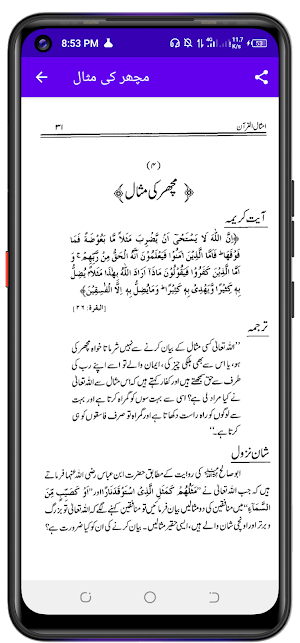 8:53 PM 4G 11.7 K/s 53
مچھر کی مثال
امثال القرآن ۳۱
(۴)
﴿مچھر کی مثال﴾
آیت کریمہ
﴿اِنَّ اللّٰهَ لَا يَسْتَحْيٖٓ اَنْ يَّضْرِبَ مَثَلًا مَّا بَعُوْضَةً فَمَا
فَوْقَهَا ؕ فَاَمَّا الَّذِيْنَ اٰمَنُوْا فَيَعْلَمُوْنَ اَنَّهُ الْحَقُّ مِنْ رَّبِّهِمْ ۚ وَ
اَمَّا الَّذِيْنَ كَفَرُوْا فَيَقُوْلُوْنَ مَاذَآ اَرَادَ اللّٰهُ بِهٰذَا مَثَلًا ۘ يُضِلُّ
بِهٖ كَثِيْرًا وَّيَهْدِيْ بِهٖ كَثِيْرًا ؕ وَمَا يُضِلُّ بِهٖٓ اِلَّا الْفٰسِقِيْنَ﴾
[البقرة: ۲۶]
ترجمہ
’’اللہ تعالیٰ کسی مثال کے بیان کرنے سے نہیں شرماتا خواہ مچھر کی
ہو، یا اس سے بھی ہلکی چیز کی، ایمان والے تو اسے اپنے رب کی
طرف سے حق سمجھتے ہیں اور کفار کہتے ہیں کہ اس مثال سے اللہ تعالیٰ
نے کیا مراد لی ہے؟ اسی سے بہت سوں کو گمراہ کرتا ہے اور بہت
سے لوگوں کو راہ راست دکھاتا ہے اور گمراہ تو صرف فاسقوں کو ہی
کرتا ہے۔‘‘
شان نزول
ابو صالح کی روایت کے مطابق حضرت ابن عباس رضی اللہ عنہما فرماتے
ہیں کہ جب اللہ تعالیٰ نے ’’مَثَلُهُمْ كَمَثَلِ الَّذِى اسْتَوْقَدَ نَارًا‘‘ اور ’’اَوْ كَصَيِّبٍ مِّنَ
السَّمَآءِ‘‘ میں منافقین کی دو مثالیں بیان فرمائیں تو منافقین کہنے لگے کہ اللہ تعالیٰ تو بزرگ
و برتر اور اونچی شان والے ہیں، ایسی حقیر مثالیں بیان کرنے کی ان کو کیا ضرورت ہے؟